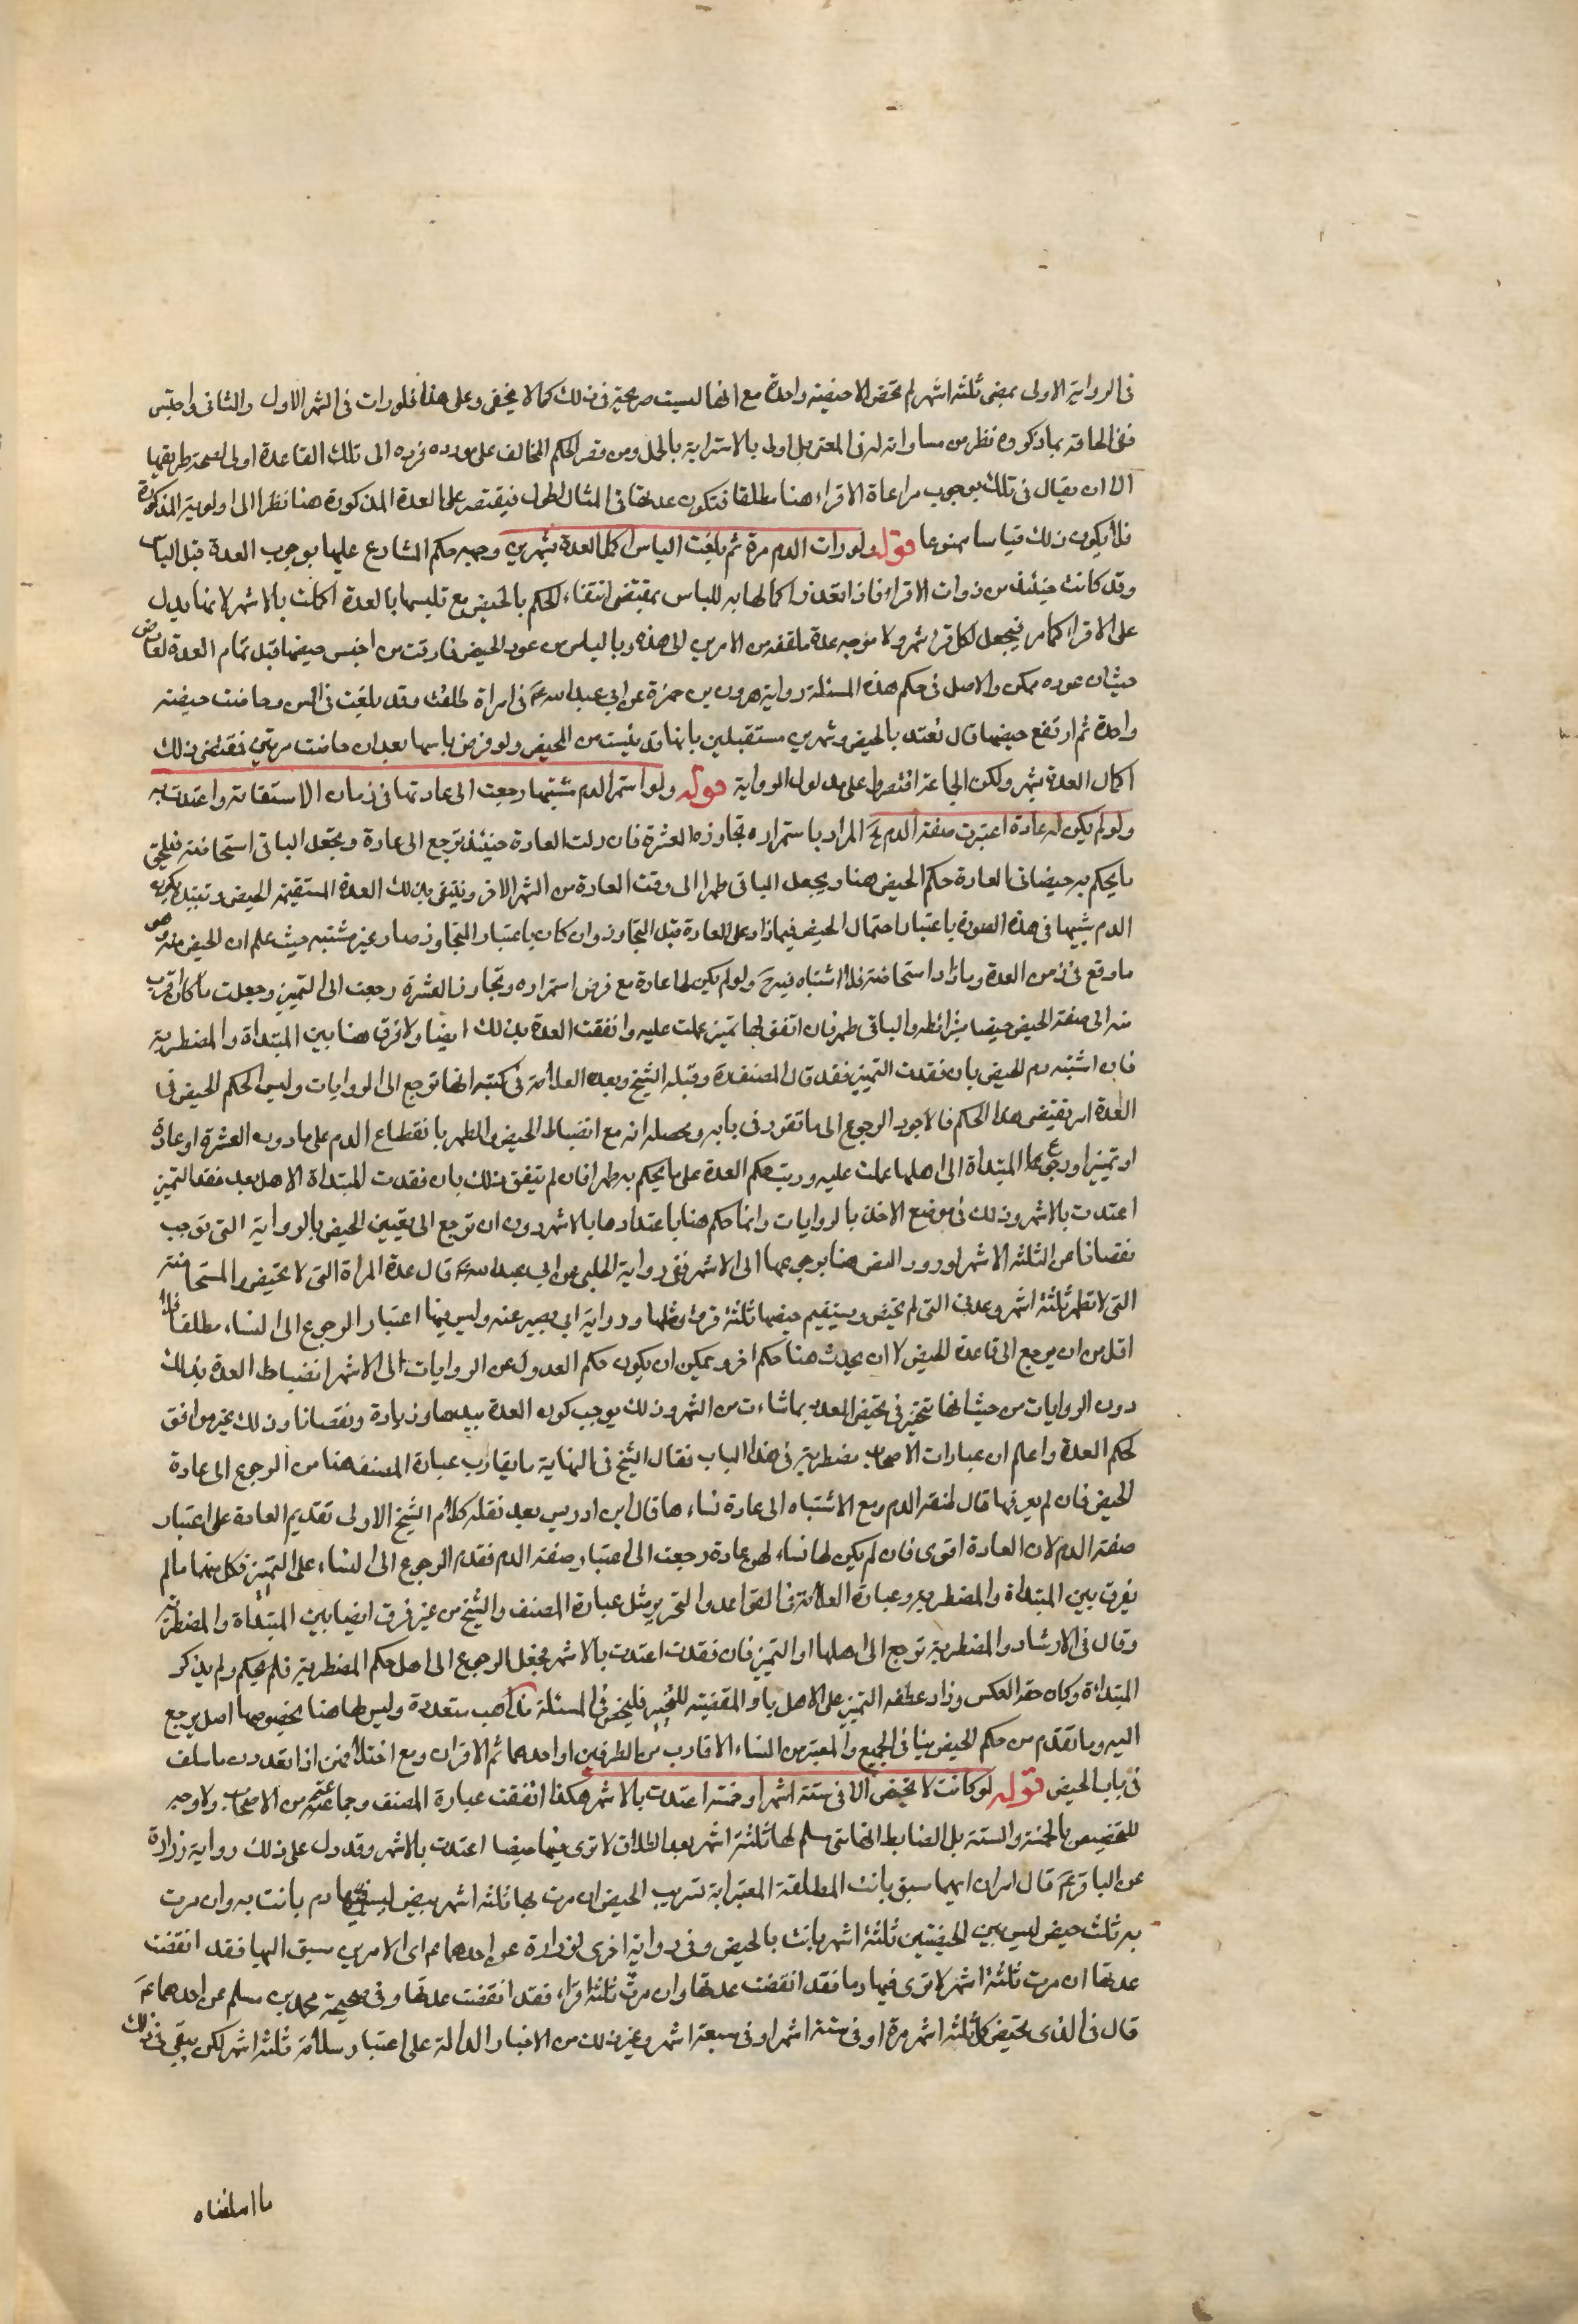 في الرواية الاولى بمضي ثلثة اشهر لم تحض الا حيضة واحدة مع انها ليست صريحة في ذلك كما لا يخفى وعلى هذا فلو رات في الشهر الاول والثاني واحتبس
ففي الحاقه بما ذكروه نظر من مساواته له في المعنى بل اولى بالاسترابة بالحمل ومن قصر الحكم المخالف على مورده فرده الى تلك القاعدة اولى لصحة طريقها
الا ان يقال في تلك بوجوب مراعاة الاقراء هنا مطلقا فتكون عدتها في المثال اطول فيقتصر على العدة المذكورة هنا نظرا الى الاولوية المذكورة
فلا يكون ذلك قياسا ممنوعا قوله ولو رات الدم مرة ثم بلغت الياس اكمل العدة بشهرين وجهه حكم الشارع عليها بوجوب العدة قبل الياس
وقد كانت حينئذ من ذوات الاقراء فاذا تعذر اكمالها به للياس بمقتضى انتفاء الحكم بالحيض مع تلبسها بالعدة اكملت بالاشهر لانها بدل
على الاقراء كما مر فيجعل لكل قرء شهر ولا موجبه عدة ملفقة من الامرين الى هذه وبالياس من عود الحيض فارقت من احتبس حيضها قبل تمام العدة لعارض
حيث ان عوده ممكن والاصل في حكم هذه المسئلة رواية هرون بن حمزة عن ابي عبد الله ع في امراة طلقت وقد بلغت في السن وحاضت حيضة
واحدة ثم ارتفع حيضها قال تعتد بالحيض وشهرين مستقبلين بانها قد يئست من المحيض ولو فرض ياسها بعد ان حاضت مرتين فمقتضى ذلك
اكمال العدة بشهر ولكن الجماعة اقتصروا على مدلول الرواية قوله ولو استمر الدم مشتبها رجعت الى عادتها في زمان الاستقامة واعتدت به
ولو لم يكن له عادة اعتبرت صفة الدم الخ المراد باستمراره تجاوزه العشرة فان رات العادة حينئذ ترجع الى عادة ويجعل الباقي استحاضة فيلحق
ما يحكم به حيضا في العادة حكم الحيض هنا ويجعل الباقي طهرا الى وقت العادة من الشهر الاخر وينقضي بذلك العدة المستقيمة الحيض وتقييده بكون
الدم مشتبها في هذه الصورة باعتبار احتمال الحيض فيما زاد على العادة قبل التجاوز وان كان باعتبار التجاوز صار غير مشتبه حيث علم ان الحيض منه هو
ما وقع في زمن العدة وما زاد استحاضة فلا اشتباه فيه ح ولو لم يكن لها عادة مع فرض استمراره وتجاوز العشرة رجعت الى التميز وجعلت ما كان اقرب
منه الى صفة الحيض حيضا بشرائطه والباقي طهر فان اتفق لها تميز عملت عليه وانقضت العدة بذلك ايضا ولا فرق هنا بين المبتداة والمضطربة
فان اشتبه دم الحيض بان فقدت التميز فقد قال المصنف ره وقبله الشيخ وبعده العلامة في كتبه انها ترجع الى الروايات وليس الحكم الحيض في
العدة امر يقتضي هذا الحكم فالاجود الرجوع الى ما تقرر في بابه ومحصله انه مع انضباط الحيض والطهر بانقطاع الدم على ما دون العشرة او عادة
او تميز او رجوع المبتداة الى اهلها عملت عليه ورتبت حكم العدة على ما يحكم به طهرا فان لم يتفق ذلك بان فقدت المبتداة الاهل بعد فقد التميز
اعتدت بالاشهر وذلك في موضع الاخذ بالروايات وانما حكم هنا باعتدادها بالاشهر دون ان ترجع الى تعيين الحيض بالرواية التي توجب
نقصانا عن الثلثة الاشهر لورود النص هنا برجوعها الى الاشهر ففي رواية الحلبي عن ابي عبد الله ع قال عدة المراة التي لا تحيض والمستحاضة
التي لا تطهر ثلثة اشهر وعدة التي لم تحض ويستقيم حيضها ثلثة قروء ومثلها رواية ابي بصير عنه وليس فيها اعتبار الرجوع الى النساء مطلقا فلا
اقل من ان يرجع الى قاعدة الحيض لا ان يحدث هنا حكم اخر ويمكن ان يكون حكم العدول عن الروايات الى الاشهر انضباط العدة بذلك
دون الروايات من حيث انها تتخير في تحيض العدد بما شاءت من الشهر وذلك يوجب كون العدة بيدها زيادة ونقصانا وذلك غير موافق
لحكم العدة واعلم ان عبارات الاصحاب مضطربة في هذا الباب فقال الشيخ في النهاية ما يقارب عبارة المصنف هنا من الرجوع الى عادة
الحيض فان لم يعرفها قال لصفة الدم ومع الاشتباه الى عادة نساءها قال ابن ادريس بعد نقله كلام الشيخ الاولى تقديم العادة على اعتبار
صفة الدم لان العادة اقوى فان لم يكن لها نساء لهن عادة رجعت الى اعتبار صفة الدم فقدم الرجوع الى النساء على التميز وكل منهما لم
يفرق بين المبتداة والمضطربة وعبارة العلامة في القواعد والتحرير مثل عبارة المصنف والشيخ من غير فرق ايضا بين المبتداة والمضطربة
وقال في الارشاد والمضطربة ترجع الى اهلها او التميز فان فقدت اعتدت بالاشهر فجعل الرجوع الى اهل حكم المضطربة فلم يحكم ولم يذكر
المبتداة وكان حقه العكس وزاد عطفه التميز على الاهل باو المقتضية للتخيير فليحض في المسئلة مذاهب متعددة وليس لها هنا بخصوصها اصل يرجع
اليه وما تقدم من حكم الحيض ينافي الجميع والمعتبر من النساء الاقارب من الطرفين او احدهما ثم الاقران ومع اختلافهن اذا تعددن ما سلف
في باب الحيض قوله لو كانت لا تحيض الا في ستة اشهر او خمسة اعتدت بالاشهر هكذا اتفقت عبارة المصنف وجماعة من الاصحاب ولا وجه
للتخصيص بالخمسة والستة بل الضابط انها متى سلم لها ثلثة اشهر بعد الطلاق لا ترى فيها حيضا اعتدت بالاشهر وقد دل على ذلك رواية زرارة
عن الباقر ع قال امران ايهما سبق بانت المطلقة المسترابة تستريب الحيض ان مرت بها ثلثة اشهر بيض ليس فيها دم بانت به وان مرت
به ثلث حيض ليس بين الحيضتين ثلثة اشهر بانت بالحيض وفي رواية اخرى لزرارة عن احدهما ع اى الامرين سبق اليها فقد انقضت
عدتها ان مرت ثلثة اشهر لا ترى فيها دما فقد انقضت عدتها وان مرت ثلثة اقراء فقد انقضت عدتها وفي صحيحة محمد بن مسلم عن احدهما ع
قال في الذى تحيض كل ثلثة اشهر مرة او في ستة اشهر او في سبعة اشهر وغير ذلك من الاخبار الدالة على اعتبار سلامة ثلثة اشهر لكن يبقى في ذلك
ما اسلفناه